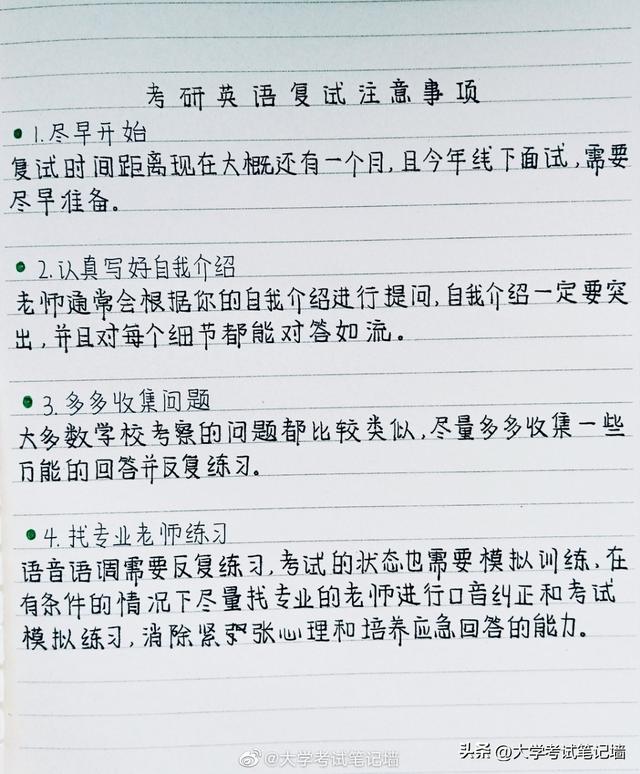 考研英语复试注意事项
1.尽早开始
复试时间距离现在大概还有一个月,且今年线下面试,需要
尽早准备。
2.认真写好自我介绍
老师通常会根据你的自我介绍进行提问,自我介绍一定要突
出,并且对每个细节都能对答如流。
3.多多收集问题
大多数学校考察的问题都比较类似,尽量多多收集一些
万能的回答并反复练习。
4.找专业老师练习
语音语调需要反复练习,考试的状态也需要模拟训练,在
有条件的情况下尽量找专业的老师进行口音纠正和考试
模拟练习,消除紧张心理和培养应急回答的能力。
@大学考试笔记墙
头条 @大学考试笔记墙